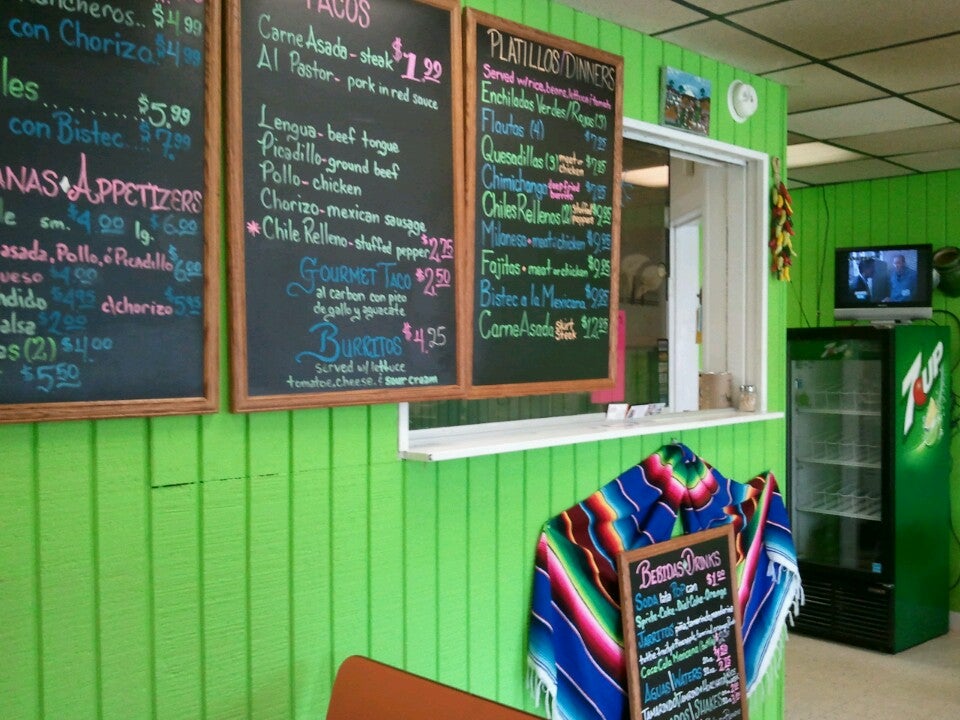 ncheros.. $4.99
con Chorizo. $4.99
les
......... $5.99
con Bistec ... $7.99
ANAS APPETIZERS
sm. $4.00 lg. $6.00
asada, Pollo, ó Picadillo $6.00
ueso $4.00
ndido $4.95 c/chorizo $5.95
alsa $2.00
os (2) $4.00
$5.50
TACOS
Carne Asada - steak $1.99
Al Pastor - pork in red sauce
Lengua - beef tongue
Picadillo - ground beef
Pollo - chicken
Chorizo - mexican sausage
* Chile Relleno - stuffed pepper $2.25
GOURMET TACO $2.50
al carbon con pico
de gallo y aguacate
BURRITOS $4.25
served w/ lettuce
tomatoe, cheese, & sour cream
PLATILLOS/DINNERS
Served w/rice, beans, lettuce, tomato
Enchiladas Verdes/Rojas (3)
Flautas (4) $7.25
Quesadillas (3) meat-chicken $7.25
Chimichanga deep fried burrito
Chiles Rellenos (2) stuffed peppers
Milanesa - meat o chicken
Fajitas - meat or chicken
Bistec a la Mexicana
Carne Asada skirt steak $12.25
7UP
BEBIDAS DRINKS
SODA POP can $1.00
Sprite-Coke-Diet Coke-Orange
JARRITOS piña, tamarindo, mandarina
Coca Cola Mexicana
AGUAS/WATERS
SHAKES